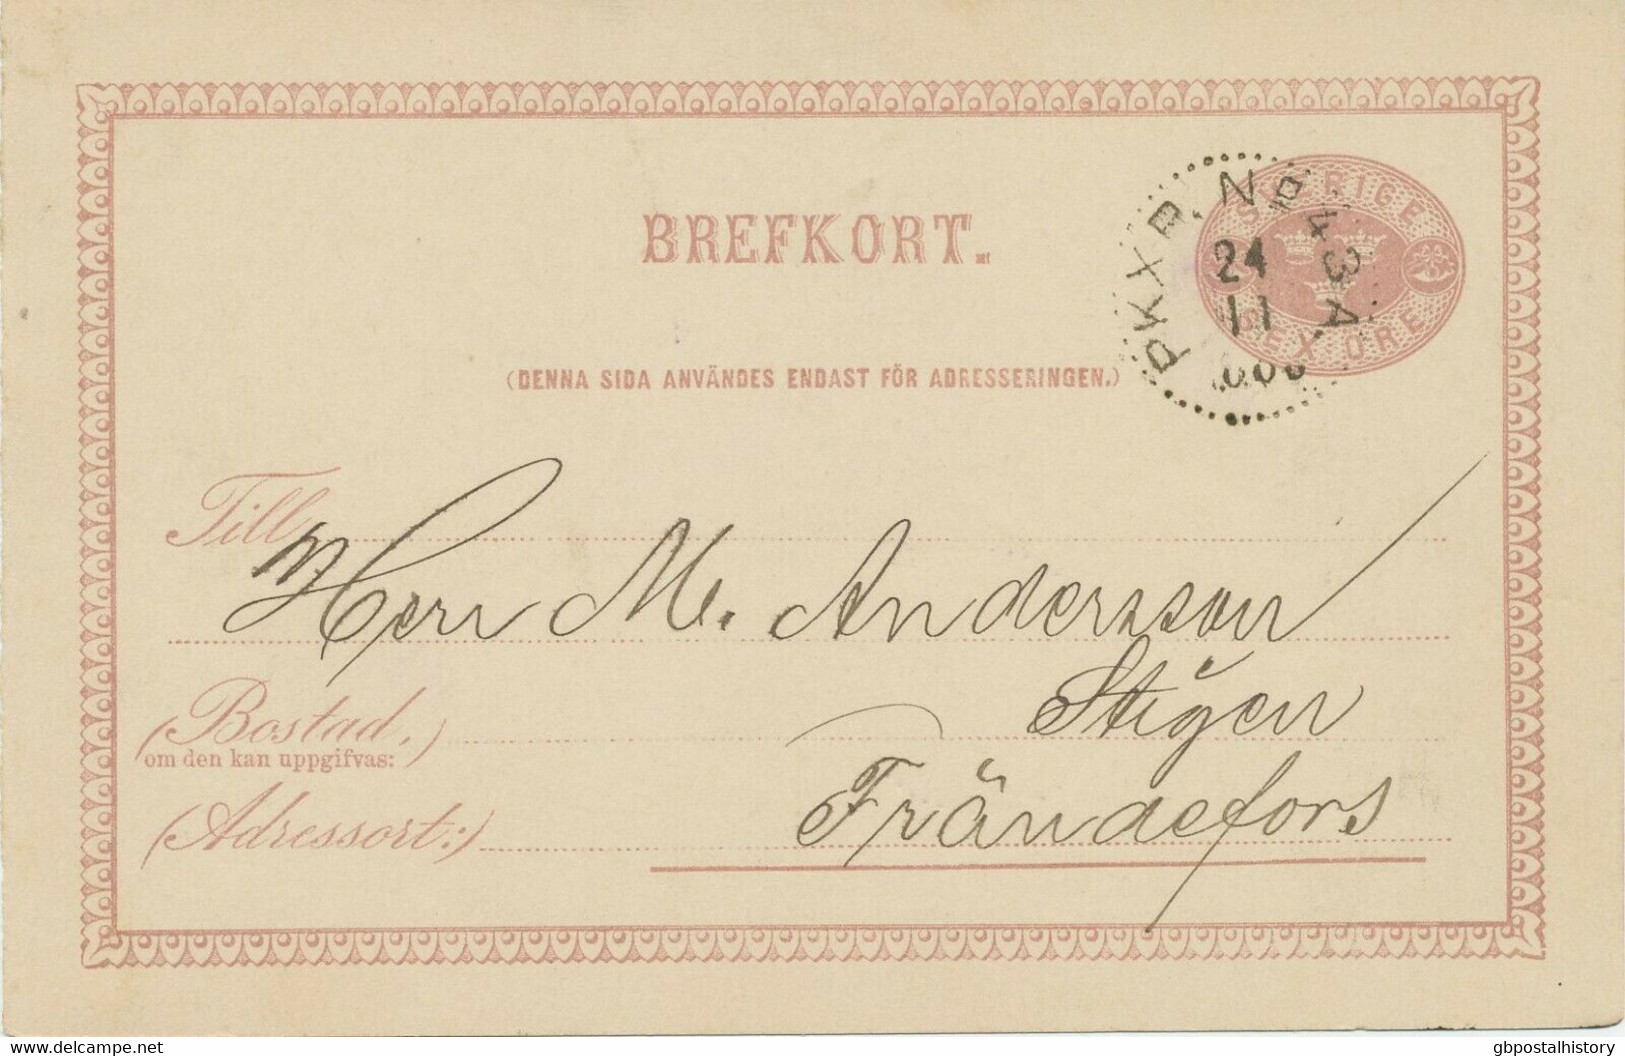 BREFKORT.
SVERIGE
SEX ÖRE
PKXP. Nº 43 A
24
11
(DENNA SIDA ANVÄNDES ENDAST FÖR ADRESSERINGEN.)
Till
Herr M. Andersson
Stigen
(Bostad,)
om den kan uppgifvas:
Frändefors
(Adressort:)
delcampe.net
gbpostalhistory